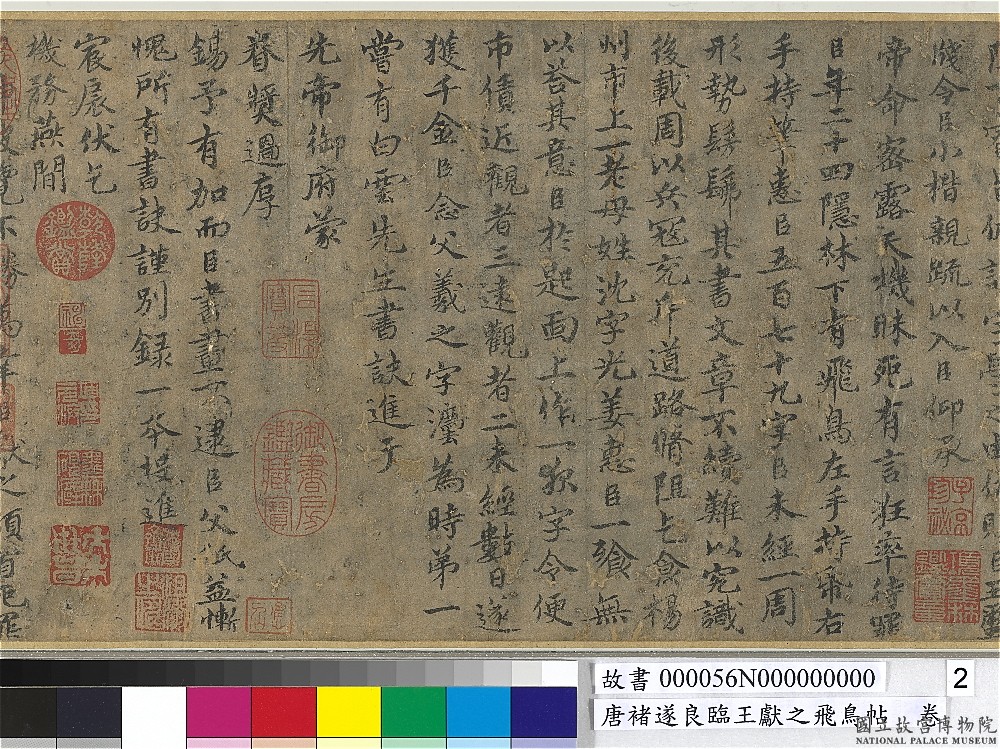 牋今臣小楷親疏以入臣仰承
帝命密露天機昧死有言狂率待罪
臣年二十四隱林下有飛鳥左手持帋右
手持筆惠臣五百七十九字臣未經一周
形勢髣髴其書文章不續難以究識
後載周以兵寇充斥道路脩阻乞食楊
州市上一老母姓沈字光姜惠臣一飡無
以荅其意臣於匙面上作一夜字令便
市債近觀者三遠觀者二未經數日遂
獲千金臣念父羲之字灋為時第一
嘗有白雲先生書訣進于
先帝御府蒙
眷獎過厚
錫予有加而臣書畫不逮臣父祇益慚
愧所有書訣謹別録一本投進
宸扆伏乞
機務燕間
故書 000056N000000000
2
唐褚遂良臨王獻之飛鳥帖 卷
國立故宮博物院
NATIONAL PALACE MUSEUM